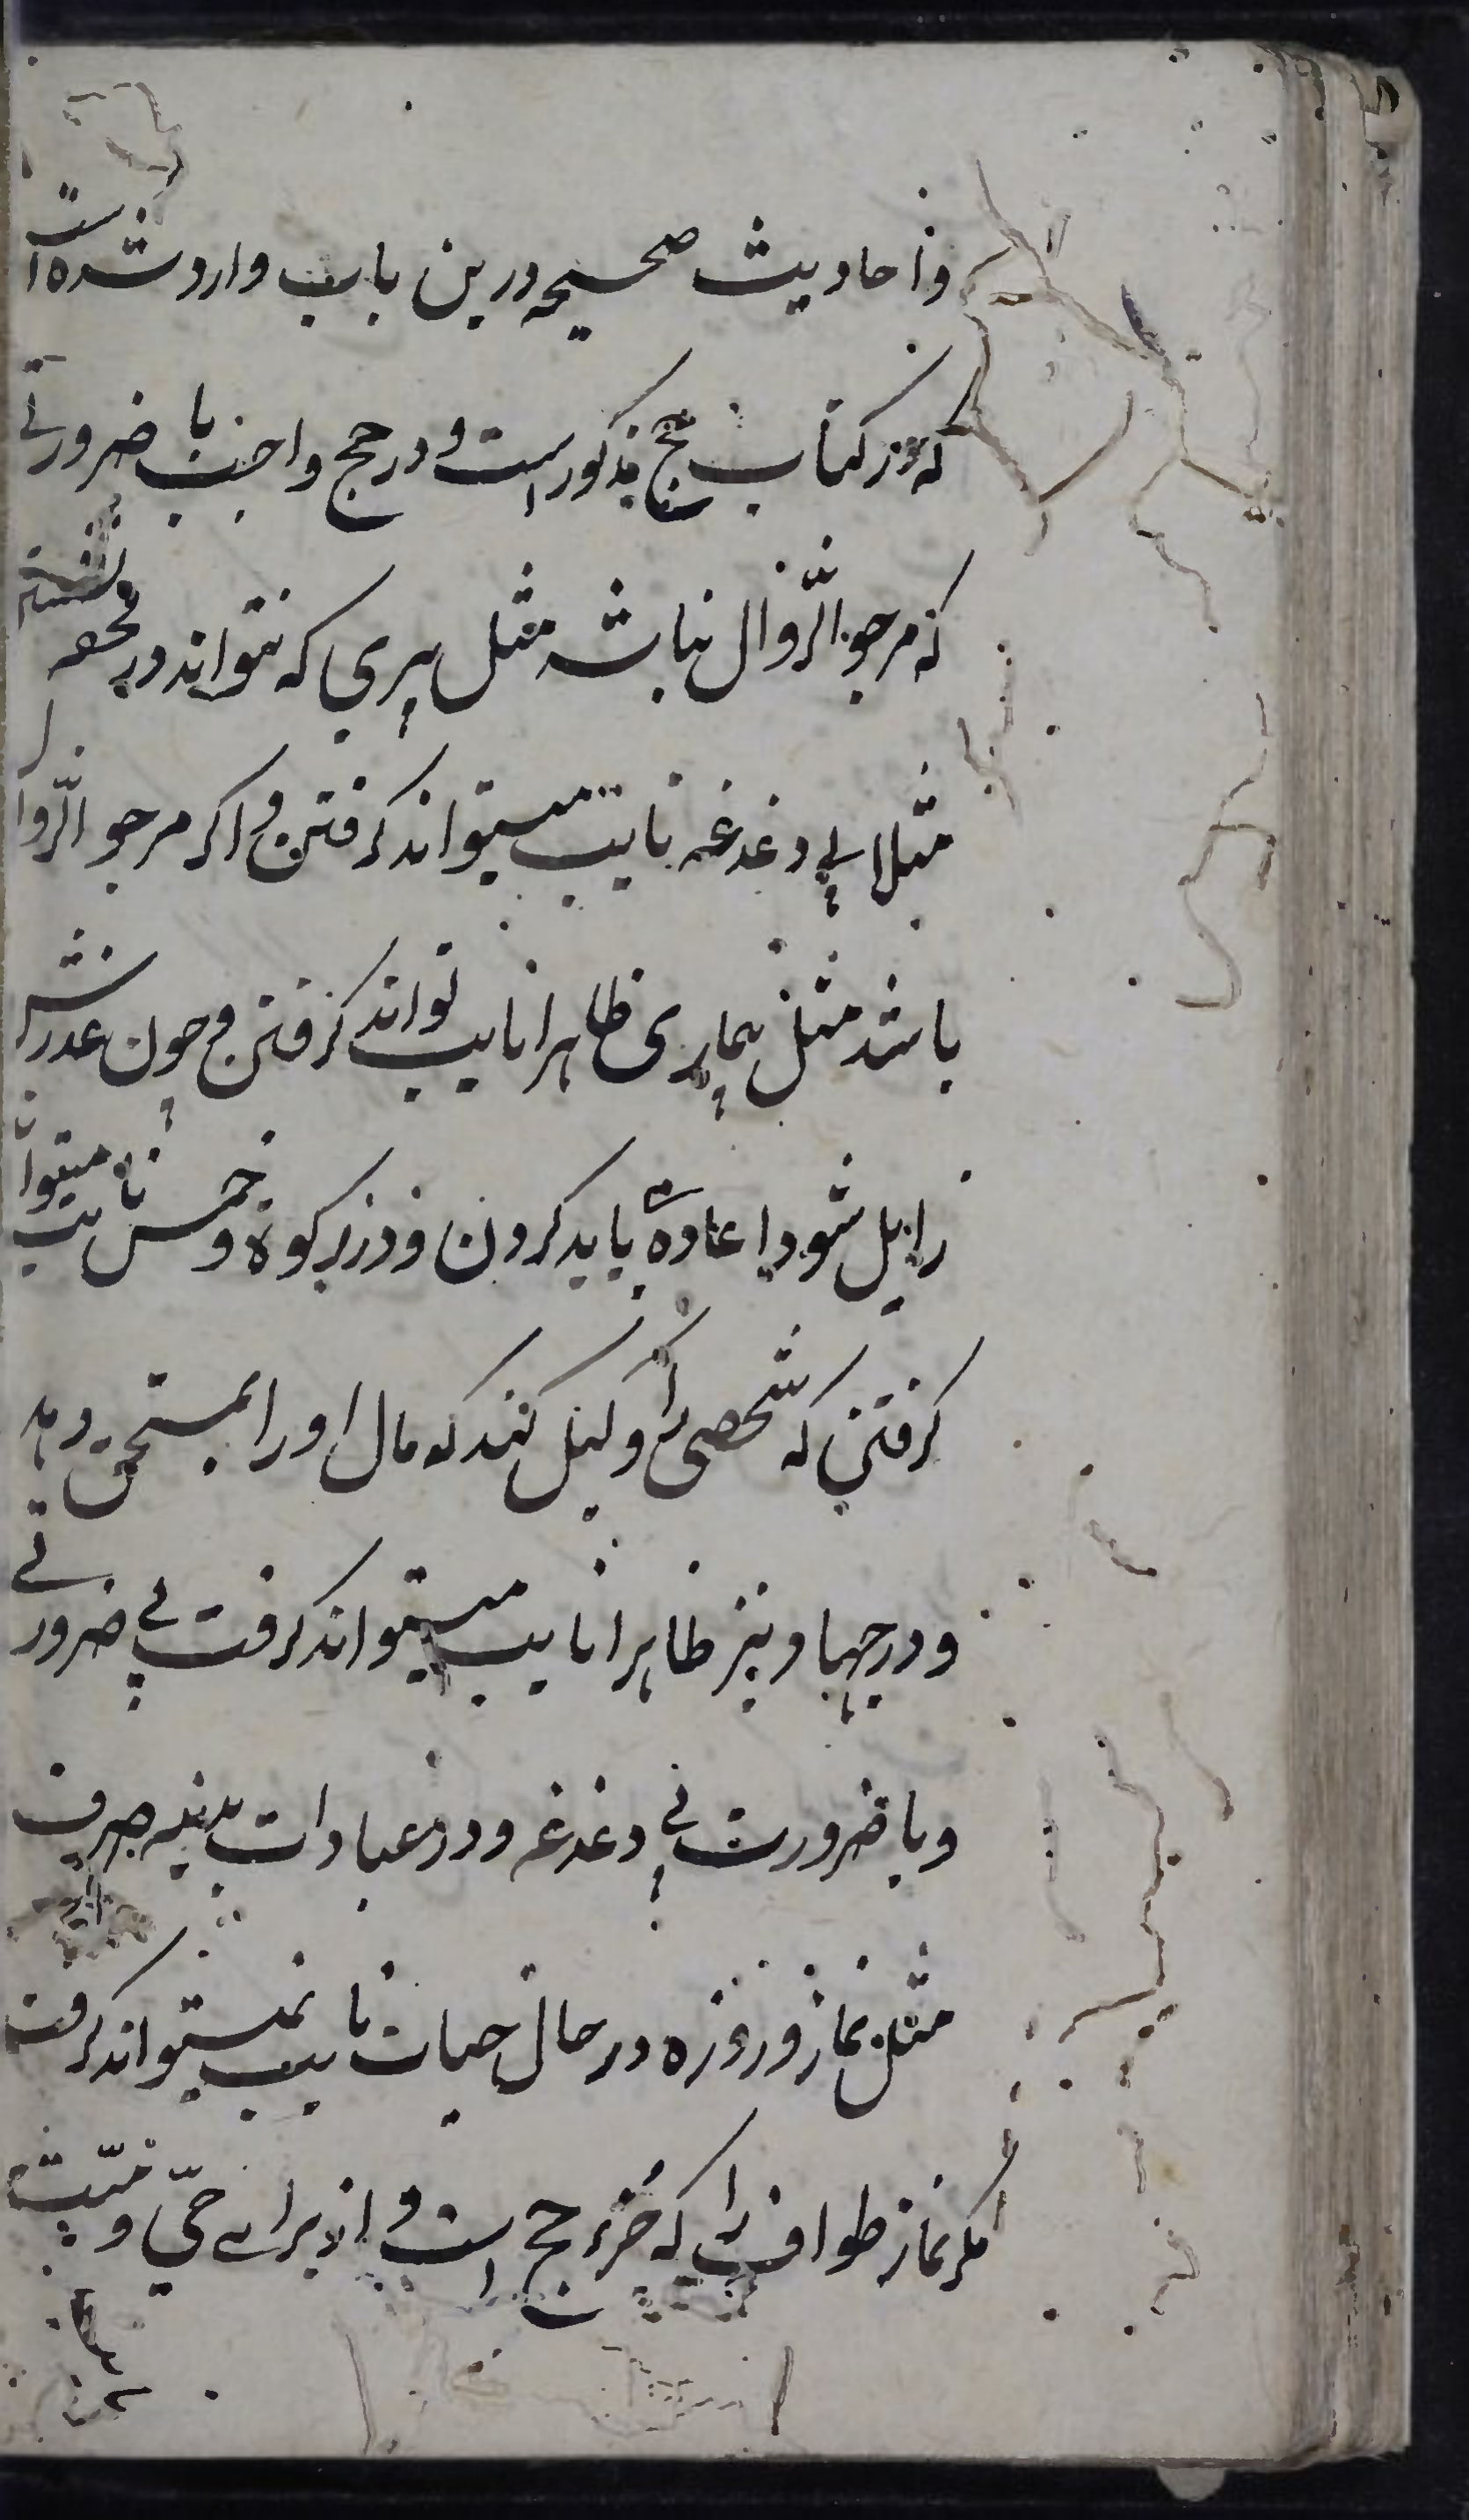 و احادیث صحیحه درین باب وارد شده است
که در کتاب حج مذکور است و در حج واجب با ضرورتی
که مرجو الزّوال نباشد مثل پیری که نتواند در محفه نشستن
مثلا بی دغدغه نایب میتواند گرفتن و اگر مرجو الزّوال
باشد مثل بیماری ظاهرا نایب تواند گرفتن و چون عذرش
زایل شود اعاده باید کردن و در زکوة و خمس نایب میتوان
گرفتن که شخصی را وکیل کنند که مال او را بمستحق دهد
و در جهاد نیز ظاهرا نایب میتواند گرفت بی ضرورتی
و با ضرورت بی دغدغه و در عبادات بدنیه صرف
مثل نماز و روزه در حال حیات نایب نمیتواند گرفت
مگر نماز طواف را که جزء حج است و از برای حیّ و میّت